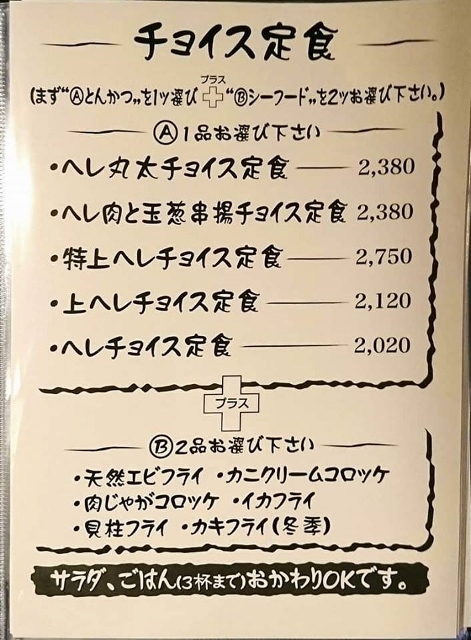 チョイス定食
(まず“Ⓐとんかつ„を1ッ選びプラス“Ⓑシーフード„を2ッお選び下さい。)
Ⓐ1品お選び下さい
・ヘレ丸太チョイス定食 2,380
・ヘレ肉と玉葱串揚チョイス定食 2,380
・特上ヘレチョイス定食 2,750
・上ヘレチョイス定食 2,120
・ヘレチョイス定食 2,020
プラス
Ⓑ2品お選び下さい
・天然エビフライ ・カニクリームコロッケ
・肉じゃがコロッケ ・イカフライ
・貝柱フライ ・カキフライ(冬季)
サラダ、ごはん(3杯まで)おかわりOKです。